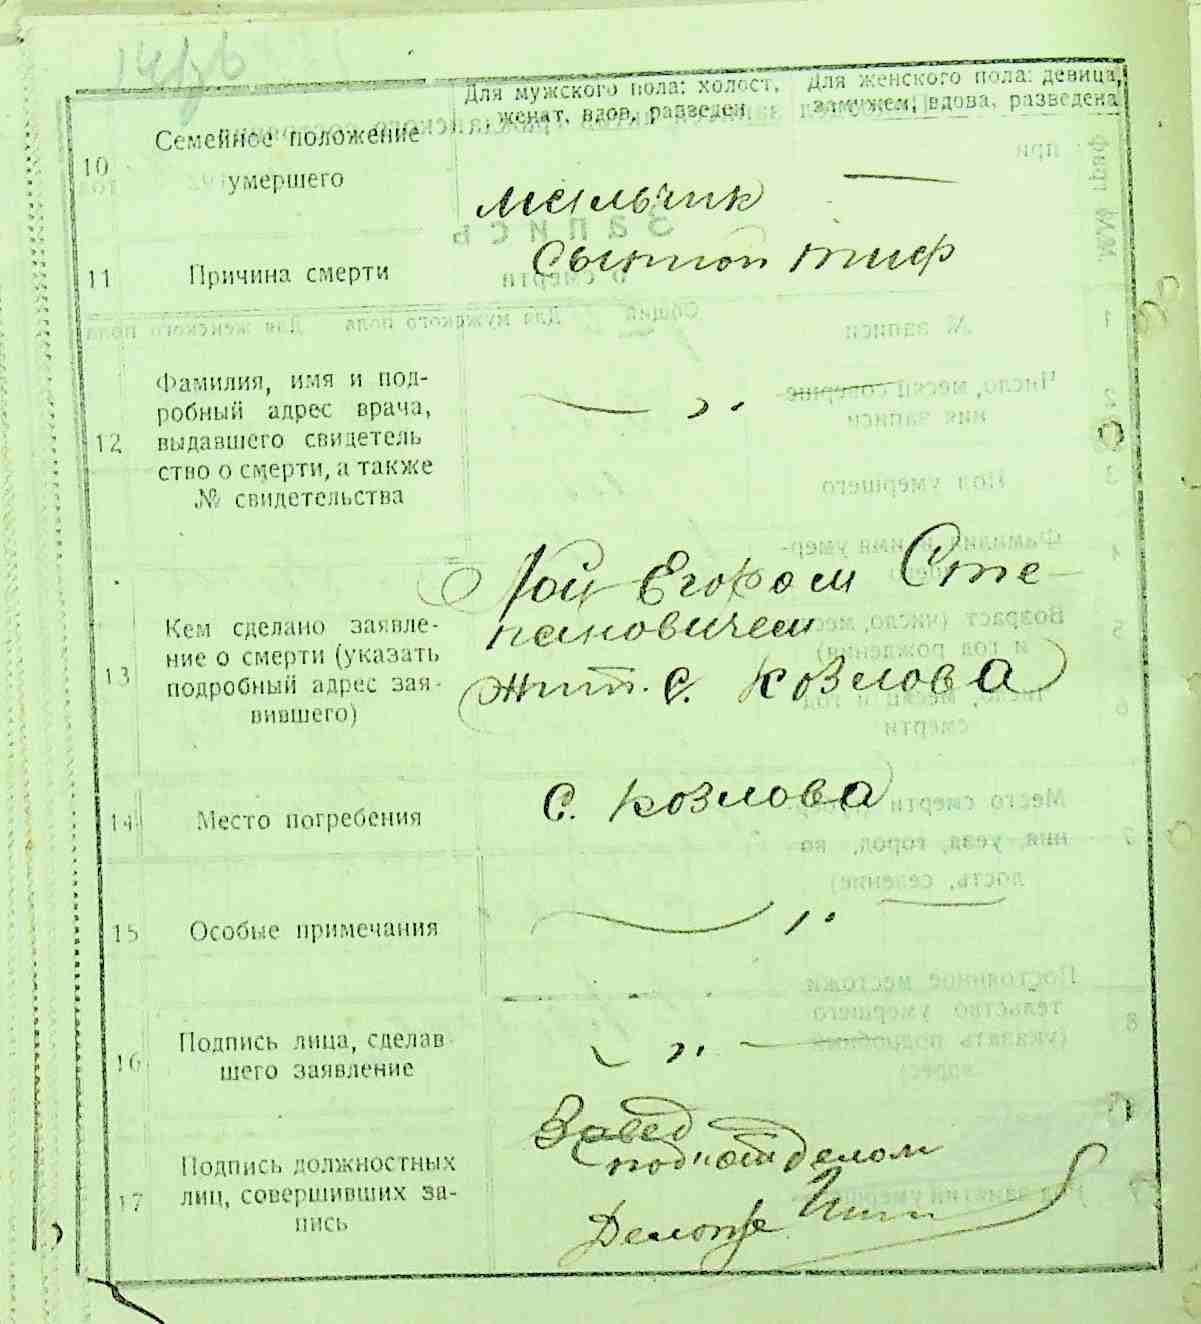 Для мужского пола: холост, женат, вдов, разведен
Для женского пола: девица, замужем, вдова, разведена
10 Семейное положение умершего
мальчик —
11 Причина смерти
Сыпной тиф
12 Фамилия, имя и под-
робный адрес врача,
выдавшего свидетель
ство о смерти, а также
№ свидетельства
— „
13 Кем сделано заявле-
ние о смерти (указать
подробный адрес зая-
вившего)
Егором Сте-
пановичем
жит. с. Козлова
14 Место погребения
С. Козлова
15 Особые примечания
— „
16 Подпись лица, сделав
шего заявление
— „ —
17 Подпись должностных
лиц, совершивших за-
пись
Завед
подотделом